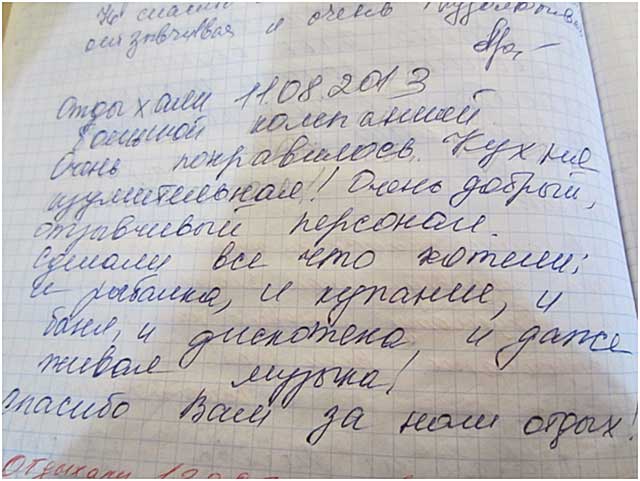 отзывчивая и очень
Отдыхали 11.08.2013
большой компанией.
Очень понравилось. Кухня
изумительная! Очень добрый,
отзывчивый персонал.
Сделали все что хотели:
и рыбалка, и купание, и
баня, и дискотека и даже
живая музыка!
Спасибо Вам за наш отдых!
Отдыхали